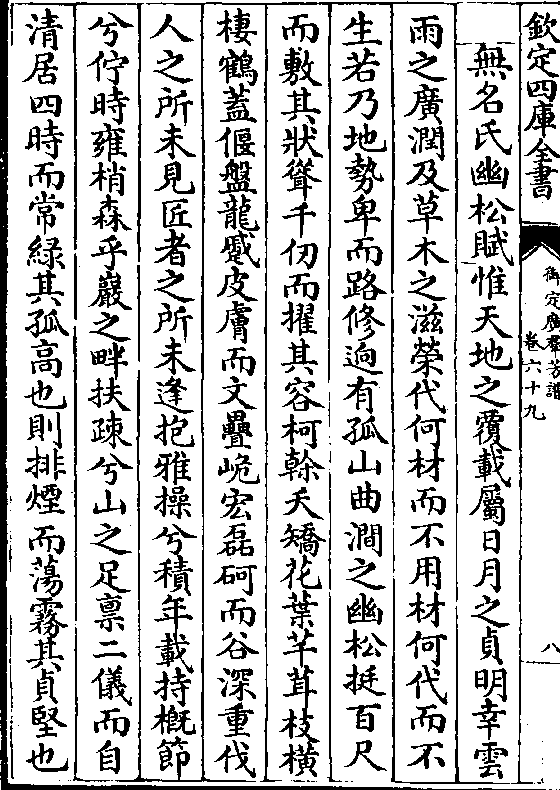 欽定四庫全書
御定廣羣芳譜
卷六十九
八
無名氏幽松賦惟天地之覆載屬日月之貞明幸雲
雨之廣潤及草木之滋榮代何材而不用材何代而不
生若乃地勢卑而路修逈有孤山曲澗之幽松挺百尺
而敷其狀聳千仞而擢其容柯榦夭矯花葉芊茸枝橫
棲鶴蓋偃盤龍蹙皮膚而文疊峗宏磊砢而谷深重伐
人之所未見匠者之所未逢抱雅操兮積年載持概節
兮佇時雍梢森乎巖之畔扶疎兮山之足禀二儀而自
清居四時而常緑其孤高也則排煙而蕩霧其貞堅也